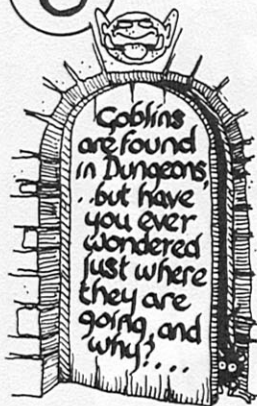 Goblins
are found
in Dungeons,
..but have
you ever
wondered
just where
they are
going, and
why?....